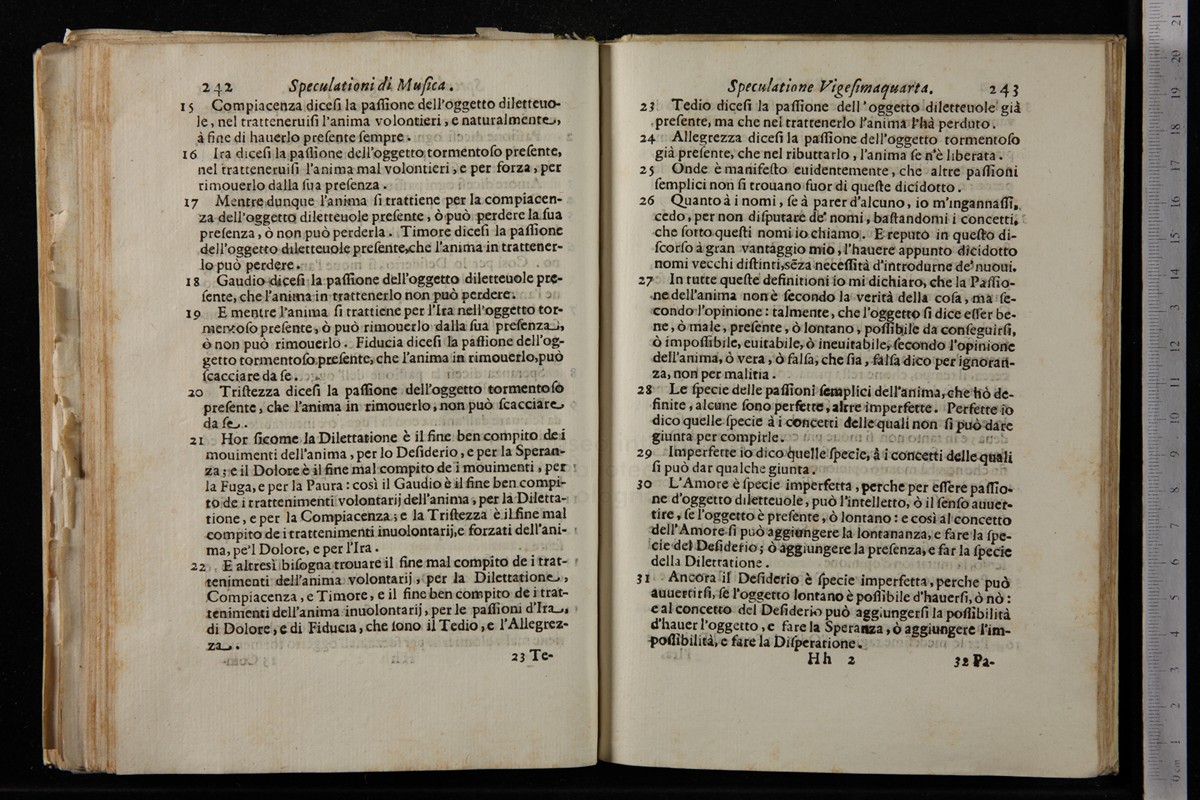 242 Speculationi di Muſica.
15 Compiacenza diceſi la paſſione dell'oggetto diletteuo-
le, nel tratteneruiſi l'anima volontieri, e naturalmente,
à fine di hauerlo preſente ſempre.
16 Ira diceſi la paſſione dell'oggetto tormentoſo preſente,
nel tratteneruiſi l'anima mal volontieri, e per forza, per
rimouerlo dalla ſua preſenza.
17 Mentre dunque l'anima ſi trattiene per la compiacen-
za dell'oggetto diletteuole preſente, ò può perdere la ſua
preſenza, ò non può perderla. Timore diceſi la paſſione
dell'oggetto diletteuole preſente, che l'anima in trattener-
lo può perdere.
18 Gaudio diceſi la paſſione dell'oggetto diletteuole pre-
ſente, che l'anima in trattenerlo non può perdere.
19 E mentre l'anima ſi trattiene per l'Ira nell'oggetto tor-
mentoſo preſente, ò può rimouerlo dalla ſua preſenza,
ò non può rimouerlo. Fiducia diceſi la paſſione dell'og-
getto tormentoſo preſente, che l'anima in rimouerlo, può
ſcacciare da ſe.
20 Triſtezza diceſi la paſſione dell'oggetto tormentoſo
preſente, che l'anima in rimouerlo, non può ſcacciare
da ſe.
21 Hor ſicome la Dilettatione è il fine ben compito dei
mouimenti dell'anima, per lo Deſiderio, e per la Speran-
za; e il Dolore è il fine mal compito de i mouimenti, per
la Fuga, e per la Paura: così il Gaudio è il fine ben compi-
to de i trattenimenti volontarij dell'anima, per la Diletta-
tione, e per la Compiacenza; e la Triſtezza è il fine mal
compito de i trattenimenti inuolontarij, e forzati dell'ani-
ma, pe'l Dolore, e per l'Ira.
22 E altresì biſogna trouare il fine mal compito de i trat-
tenimenti dell'anima volontarij, per la Dilettatione,
Compiacenza, e Timore, e il fine ben compito de i trat-
tenimenti dell'anima inuolontarij, per le paſſioni d'Ira,
di Dolore, e di Fiducia, che ſono il Tedio, e l'Allegrez-
za.
23 Te-
Speculatione Vigeſimaquarta. 243
23 Tedio diceſi la paſſione dell'oggetto diletteuole già
preſente, ma che nel trattenerlo l'anima l'hà perduto.
24 Allegrezza diceſi la paſſione dell'oggetto tormentoſo
già preſente, che nel ributtarlo, l'anima ſe n'è liberata.
25 Onde è manifeſto euidentemente, che altre paſſioni
ſemplici non ſi trouano fuor di queſte dicidotto.
26 Quanto à i nomi, ſe à parer d'alcuno, io m'ingannaſſi,
cedo, per non diſputare de' nomi, baſtandomi i concetti,
che ſotto queſti nomi io chiamo. E reputo in queſto di-
ſcorſo à gran vantaggio mio, l'hauere appunto dicidotto
nomi vecchi diſtinti, sẽza neceſſità d'introdurne de' nuoui.
27 In tutte queſte definitioni io mi dichiaro, che la Paſſio-
ne dell'anima non è ſecondo la verità della coſa, ma ſe-
condo l'opinione: talmente, che l'oggetto ſi dice eſſer be-
ne, ò male, preſente, ò lontano, poſſibile da conſeguirſi,
ò impoſſibile, euitabile, ò ineuitabile, ſecondo l'opinione
dell'anima, ò vera, ò falſa, che ſia, falſa dico per ignoran-
za, non per malitia.
28 Le ſpecie delle paſſioni ſemplici dell'anima, che hò de-
finite, alcune ſono perfette, altre imperfette. Perfette io
dico quelle ſpecie à i concetti delle quali non ſi può dare
giunta per compirle.
29 Imperfette io dico quelle ſpecie, à i concetti delle quali
ſi può dar qualche giunta.
30 L'Amore è ſpecie imperfetta, perche per eſſere paſſio-
ne d'oggetto diletteuole, può l'intelletto, ò il ſenſo auuer-
tire, ſe l'oggetto è preſente, ò lontano: e così al concetto
dell'Amore ſi può aggiungere la lontananza, e fare la ſpe-
cie del Deſiderio; ò aggiungere la preſenza, e far la ſpecie
della Dilettatione.
31 Ancora il Deſiderio è ſpecie imperfetta, perche può
auuertirſi, ſe l'oggetto lontano è poſſibile d'hauerſi, ò nò:
e al concetto del Deſiderio può aggiungerſi la poſſibilità
d'hauer l'oggetto, e fare la Speranza, ò aggiungere l'im-
poſſibilità, e fare la Diſperatione.
Hh 2 32 Pa-